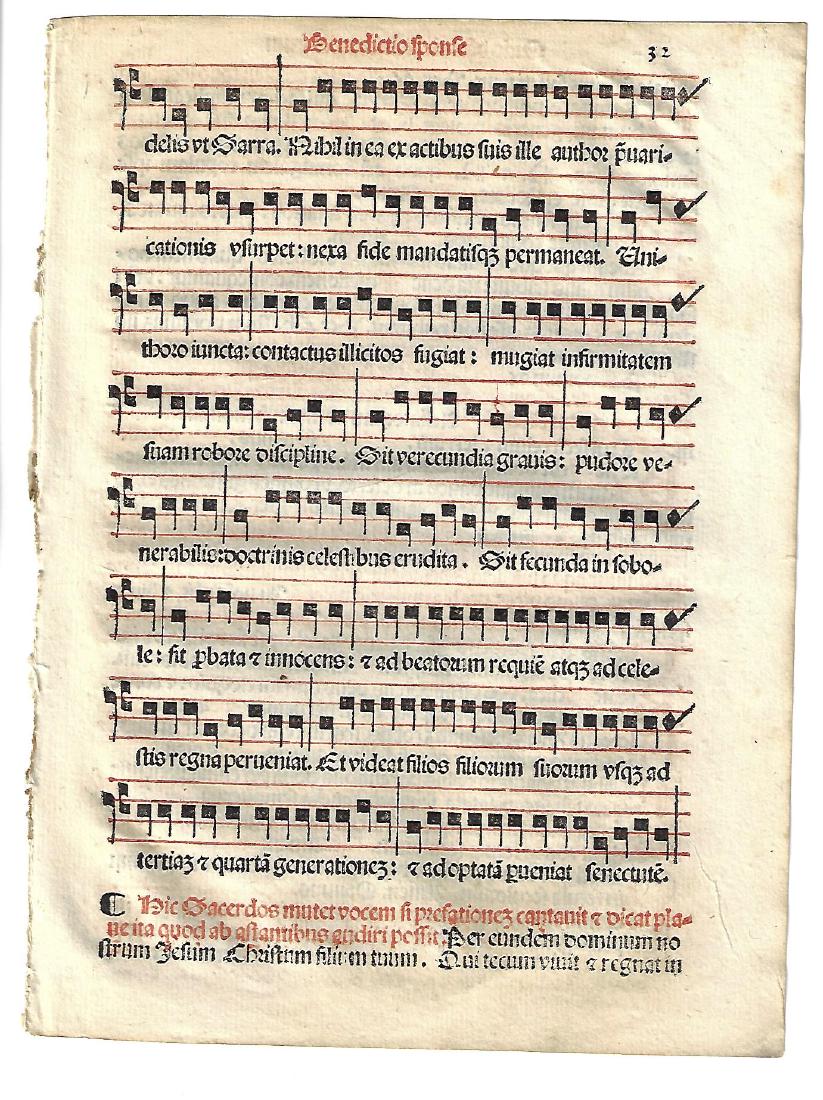 Benedictio sponse
32
delis vt Sarra. Nihil in ea ex actibus suis ille author p̄uari-
cationis vsurpet: nexa fide mandatisqꝫ permaneat. Uni-
thoro iuncta: contactus illicitos fugiat: mugiat infirmitatem
suam robore discipline. Sit verecundia grauis: pudore ve-
nerabilis: doctrinis celestibus erudita. Sit fecunda in sobo-
le: sit ꝓbata ⁊ innocens: ⁊ ad beatorum requiē atqꝫ ad cele-
stis regna perueniat. Et videat filios filiorum suorum vsqꝫ ad
tertiaꝫ ⁊ quartā generationeꝫ: ⁊ ad optatā ꝑueniat senectutē.
¶ Hic Sacerdos mutet vocem si prefationeꝫ cantauit ⁊ dicat pla-
ne ita quod ab astantibus audiri possit. Per eundem dominum no
strum Jesum Christum filium tuum. Qui tecum viuit ⁊ regnat in